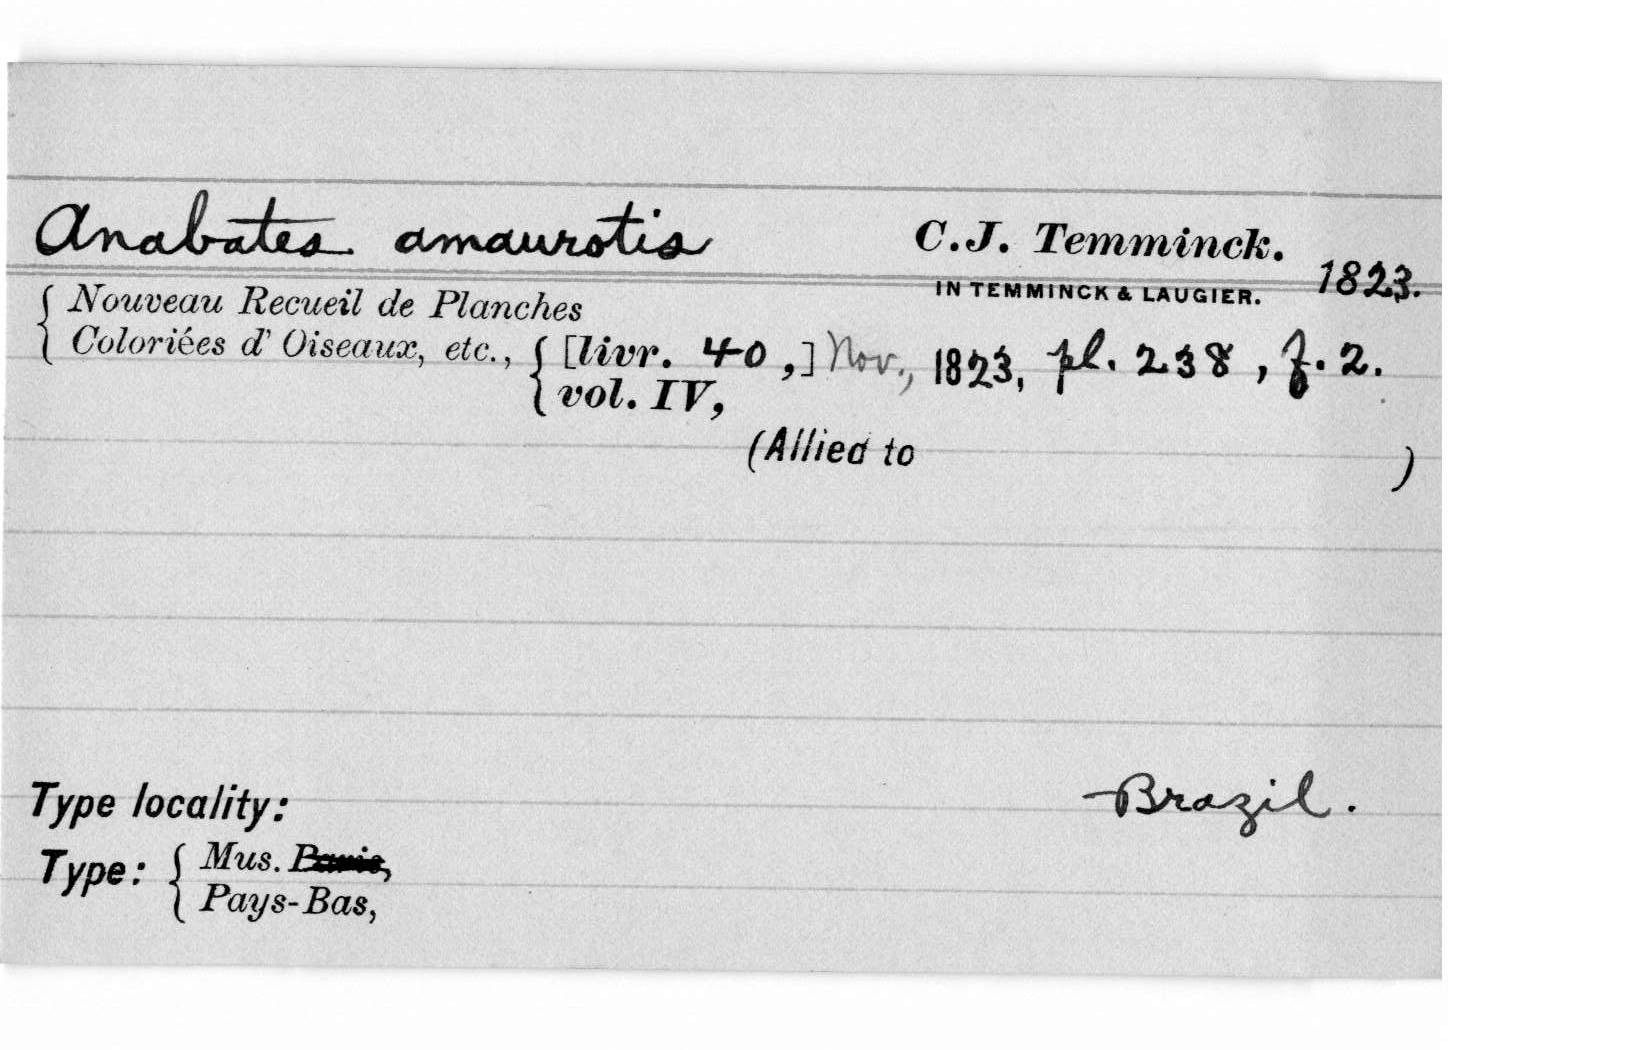 Anabates amaurotis C.J. Temminck.
IN TEMMINCK & LAUGIER. 1823.
{ Nouveau Recueil de Planches
Coloriées d' Oiseaux, etc., { [livr. 40 ,] Nov., 1823, pl. 238 , f. 2.
vol. IV,
(Allied to )
Type locality: Brazil.
Type: { Mus. Paris,
Pays-Bas,